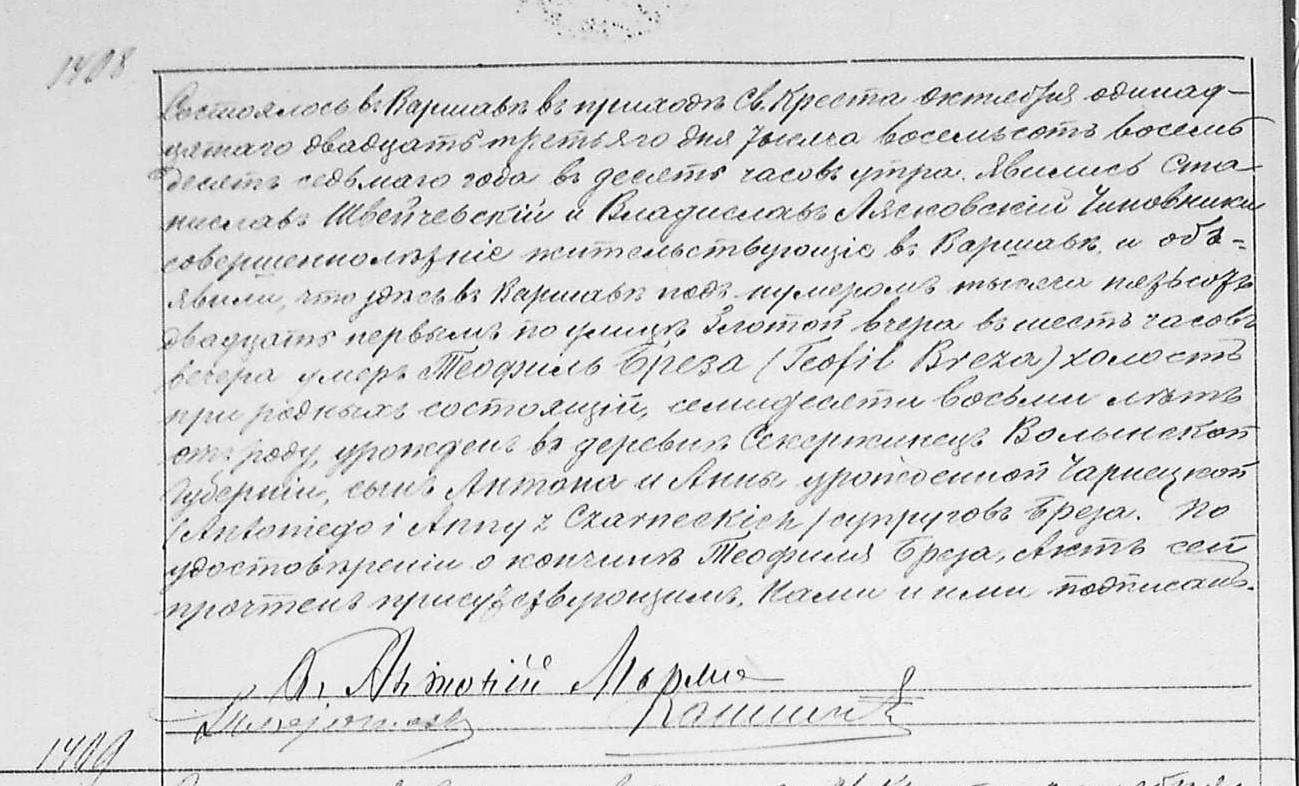 1408
Состоялось въ Варшавѣ въ приходѣ Св. Креста октября одинад-
цатаго двадцать третьяго дня тысяча восемьсотъ восемь
десятъ седьмаго года въ десять часовъ утра. Явились Ста-
ниславъ Швейчевскій и Владиславъ Лясковскій Чиновники
совершеннолѣтніе жительствующіе въ Варшавѣ, и объ-
явили, что здѣсь въ Варшавѣ подъ нумеромъ тысяча пятьсотъ
двадцать первымъ по улицѣ Златой вчера въ шесть часовъ
вечера умеръ Теофиль Бреза (Teofil Breza) холостъ
при родныхъ состоящій, семидесяти восьми лѣтъ
отъ роду, урожденъ въ деревнѣ Секержинецъ Волынской
Губерніи, сынъ Антона и Анны урожденной Чарнецкой
(Antoniego i Anny z Czarneckich) супруговъ Бреза. По
удостовѣреніи о кончинѣ Теофиля Бреза, Актъ сей
прочтенъ присутствующимъ, Нами и ими подписанъ.
Антоній
1409